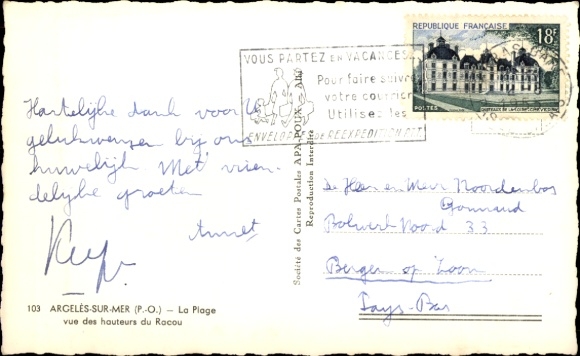 Hartelijke dank voor Uw
gelukwensen bij ons
huwelijk. Met vrien-
delijke groeten
Annet
103 ARGELÈS-SUR-MER (P.-O.) — La Plage
vue des hauteurs du Racou
Société des Cartes Postales APA-POUX - ALBI
Reproduction Interdite
VOUS PARTEZ EN VACANCES
Pour faire suivre
votre courrier
Utilisez les
ENVELOPPES DE REEXPEDITION
REPUBLIQUE FRANÇAISE 18F
POSTES
De Heer en Mevr Noordenbos
Bolwerk Noord 33
Bergen op Zoom
Pays-Bas